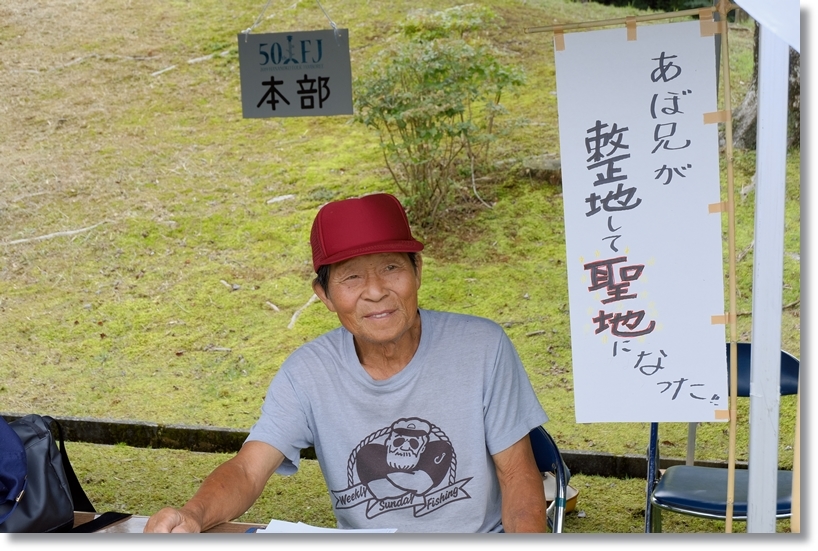 50 FJ
本部
あぼ兄が
整地して
聖地に
なった!!
Weekly Sunday Fishing